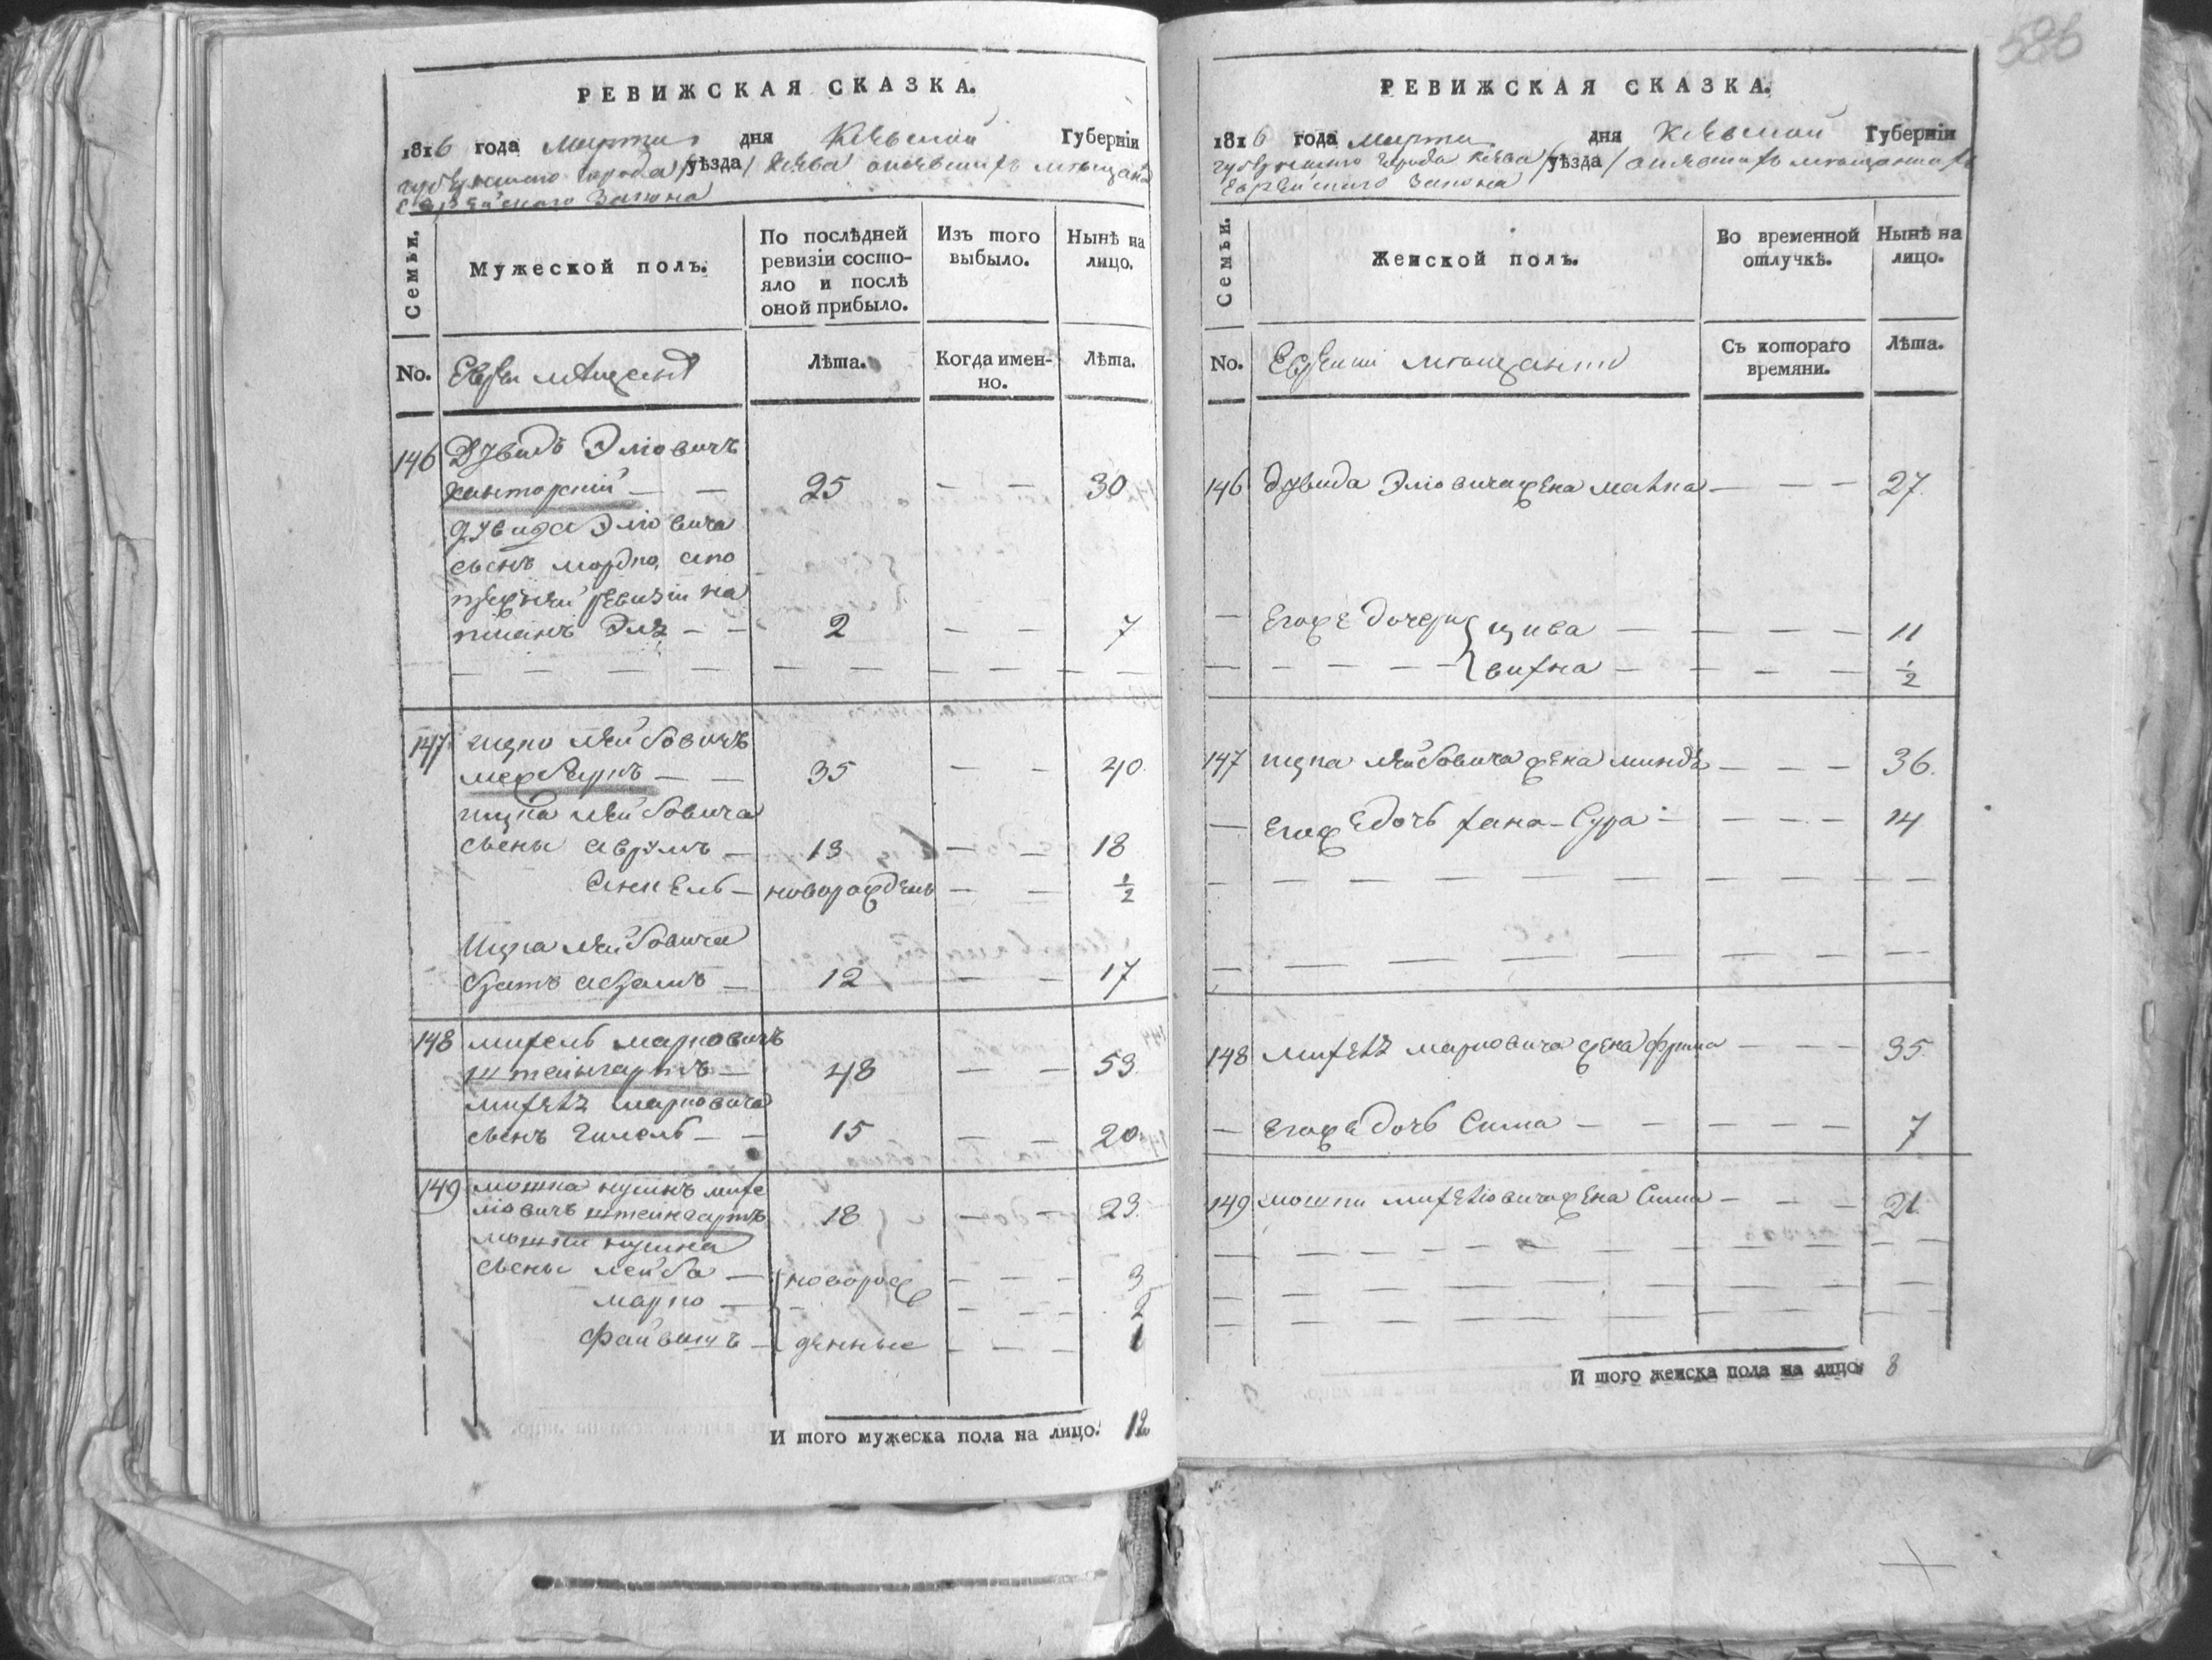 РЕВИЖСКАЯ СКАЗКА.
1816 года марта дня Кіевской Губерніи
губернскаго города /уѣзда/ Кіева о кіевскихъ мѣщанахъ
Еврейскаго закона
Семьи.
Мужеской полъ.
По послѣдней ревизіи состо-
яло и послѣ
оной прибыло.
Изъ того
выбыло.
Нынѣ на
лицо.
No.
Евреи мѣщане
Лѣта.
Когда имен-
но.
Лѣта.
146 Дувидъ Эліовичъ
Канторскій — — 25 — — 30
Дувида Эліовича
сынъ Мордко, а по
прежней ревизіи на
писанъ Эля — — 2 — — 7
147 Ицко Лейбовичъ
— — 35 — — 40
Ицка Лейбовича
сыны Аврумъ — 13 — — 18
Янкель — новорожденъ — — ½
Ицка Лейбовича
братъ Абрамъ — 12 — — 17
148 Михель Марковичъ
Штейнгартъ — 48 — — 53
Михеля Марковича
сынъ Гилель — — 15 — — 20
149 Мошка Нусинъ Михе
ліовичъ Штейнгартъ 18 — — 23
Мошки Нусина
сыны Лейба — новорож — — — 3
Марко — — — — 2
Файвишъ — денные — — — 1
И того мужеска пола на лицо. 12
586
РЕВИЖСКАЯ СКАЗКА.
1816 года марта дня Кіевской Губерніи
губернскаго города Кіева /уѣзда/ о кіевскихъ мѣщанкахъ
Еврейскаго закона
Семьи.
Женской полъ.
Во временной
отлучкѣ.
Нынѣ на
лицо.
No.
Еврейки мѣщанки
Съ котораго
времяни.
Лѣта.
146 Дувида Эліовича жена Малка — — — 27
— Егоже дочери Цива — — — — 11
— — — — — Вихна — — — — ½
147 Ицка Лейбовича жена Миндля — — — 36
— Егоже дочь Хана-Сура — — — — 14
148 Михеля Марковича жена Фрима — — — 35
— Егоже дочь Сима — — — — — 7
149 Мошки Михеліовича жена Сима — — — 21
И того женска пола на лицо 8